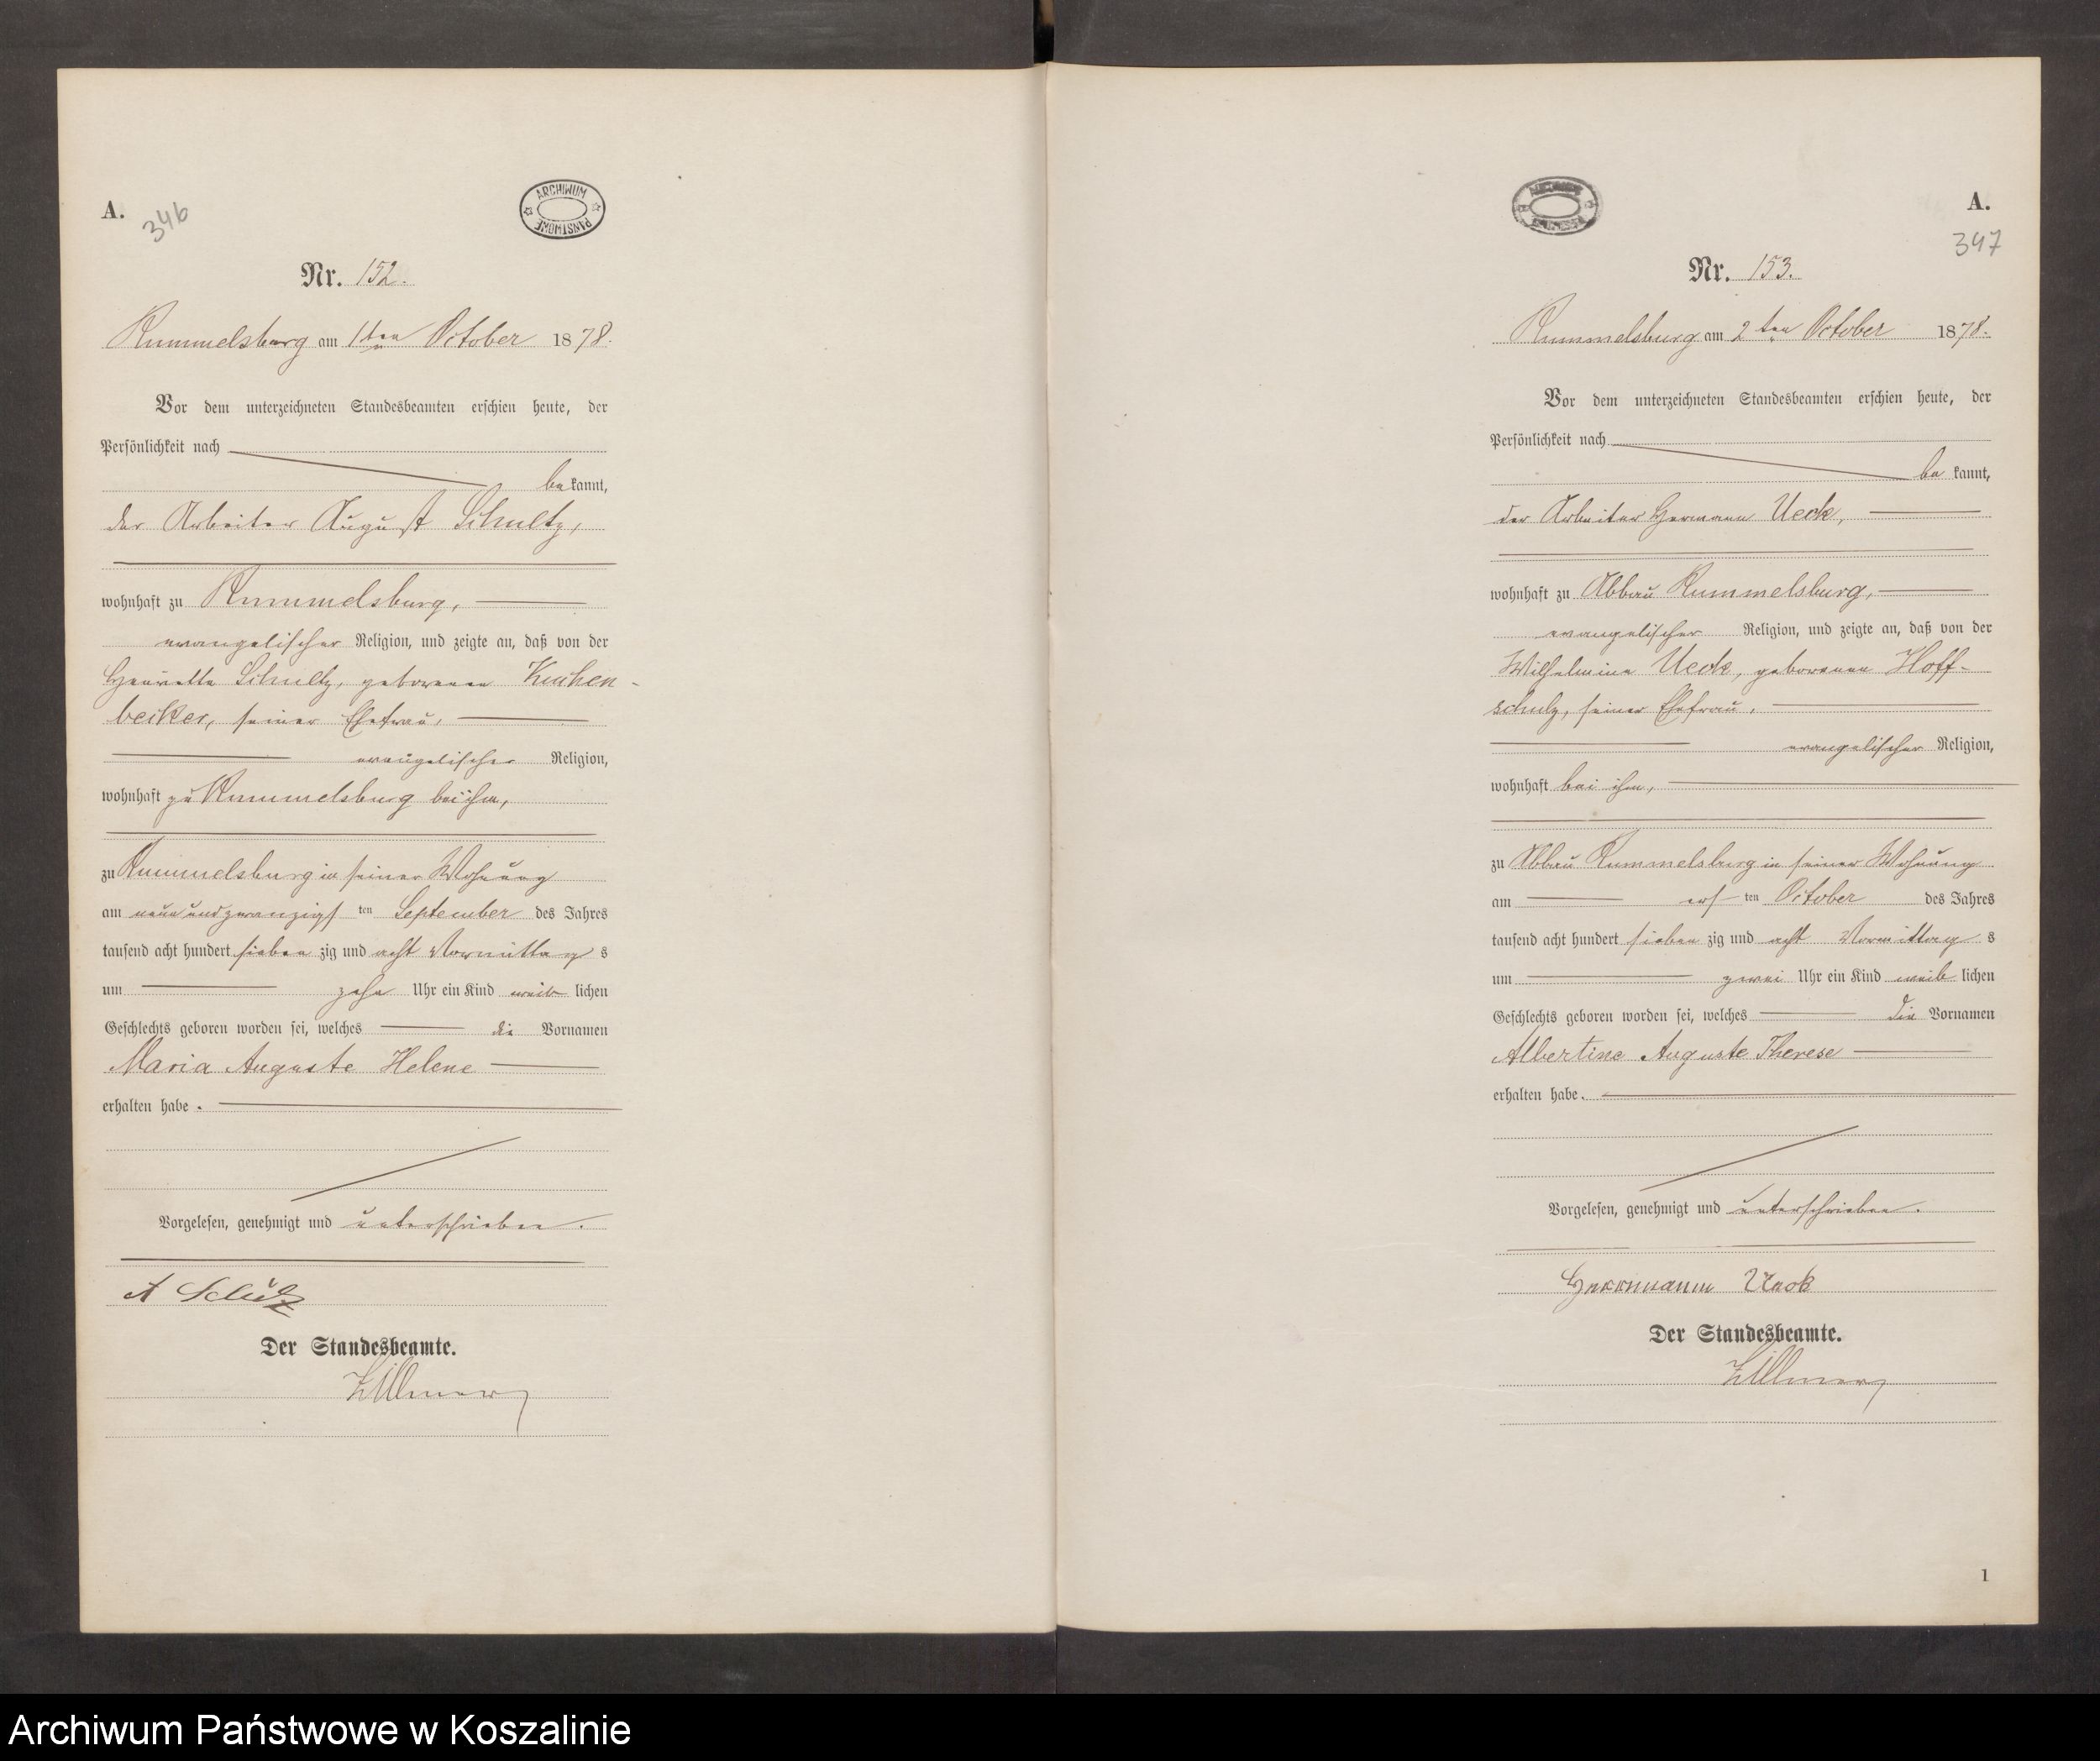 A.
346
ARCHIWUM PAŃSTWOWE
Nr. 152.
Rummelsburg am 1ten October 1878.
Vor dem unterzeichneten Standesbeamten erschien heute, der
Persönlichkeit nach
bekannt,
der Arbeiter August Schultz,
wohnhaft zu Rummelsburg,
evangelischer Religion, und zeigte an, daß von der
Henriette Schultz, geborenen Kuchen-
becker, seiner Ehefrau,
evangelischer Religion,
wohnhaft zu Rummelsburg bei ihm,
zu Rummelsburg in seiner Wohnung
am neunundzwanzigsten September des Jahres
tausend acht hundert siebenzig und acht Vormittags
um zehn Uhr ein Kind weiblichen
Geschlechts geboren worden sei, welches die Vornamen
Maria Auguste Helene
erhalten habe.
Vorgelesen, genehmigt und unterschrieben.
A Schulz
Der Standesbeamte.
Zillmer
A.
347
Nr. 153.
Rummelsburg am 2ten October 1878.
Vor dem unterzeichneten Standesbeamten erschien heute, der
Persönlichkeit nach
bekannt,
der Arbeiter Hermann Ueck,
wohnhaft zu Abbau Rummelsburg,
evangelischer Religion, und zeigte an, daß von der
Wilhelmine Ueck, geborenen Hoff-
schulz, seiner Ehefrau,
evangelischer Religion,
wohnhaft bei ihm,
zu Abbau Rummelsburg in seiner Wohnung
am ersten October des Jahres
tausend acht hundert siebenzig und acht Vormittags
um zwei Uhr ein Kind weiblichen
Geschlechts geboren worden sei, welches die Vornamen
Albertine Auguste Therese
erhalten habe.
Vorgelesen, genehmigt und unterschrieben.
Herrmann Ueck
Der Standesbeamte.
Zillmer
1
Archiwum Państwowe w Koszalinie